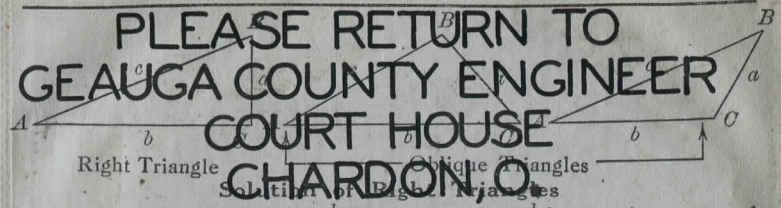 PLEASE RETURN TO
GEAUGA COUNTY ENGINEER
COURT HOUSE
CHARDON, O.
B B B
c a c a
A b A b A b C
Right Triangle Oblique Triangles
Solution of Right Triangles